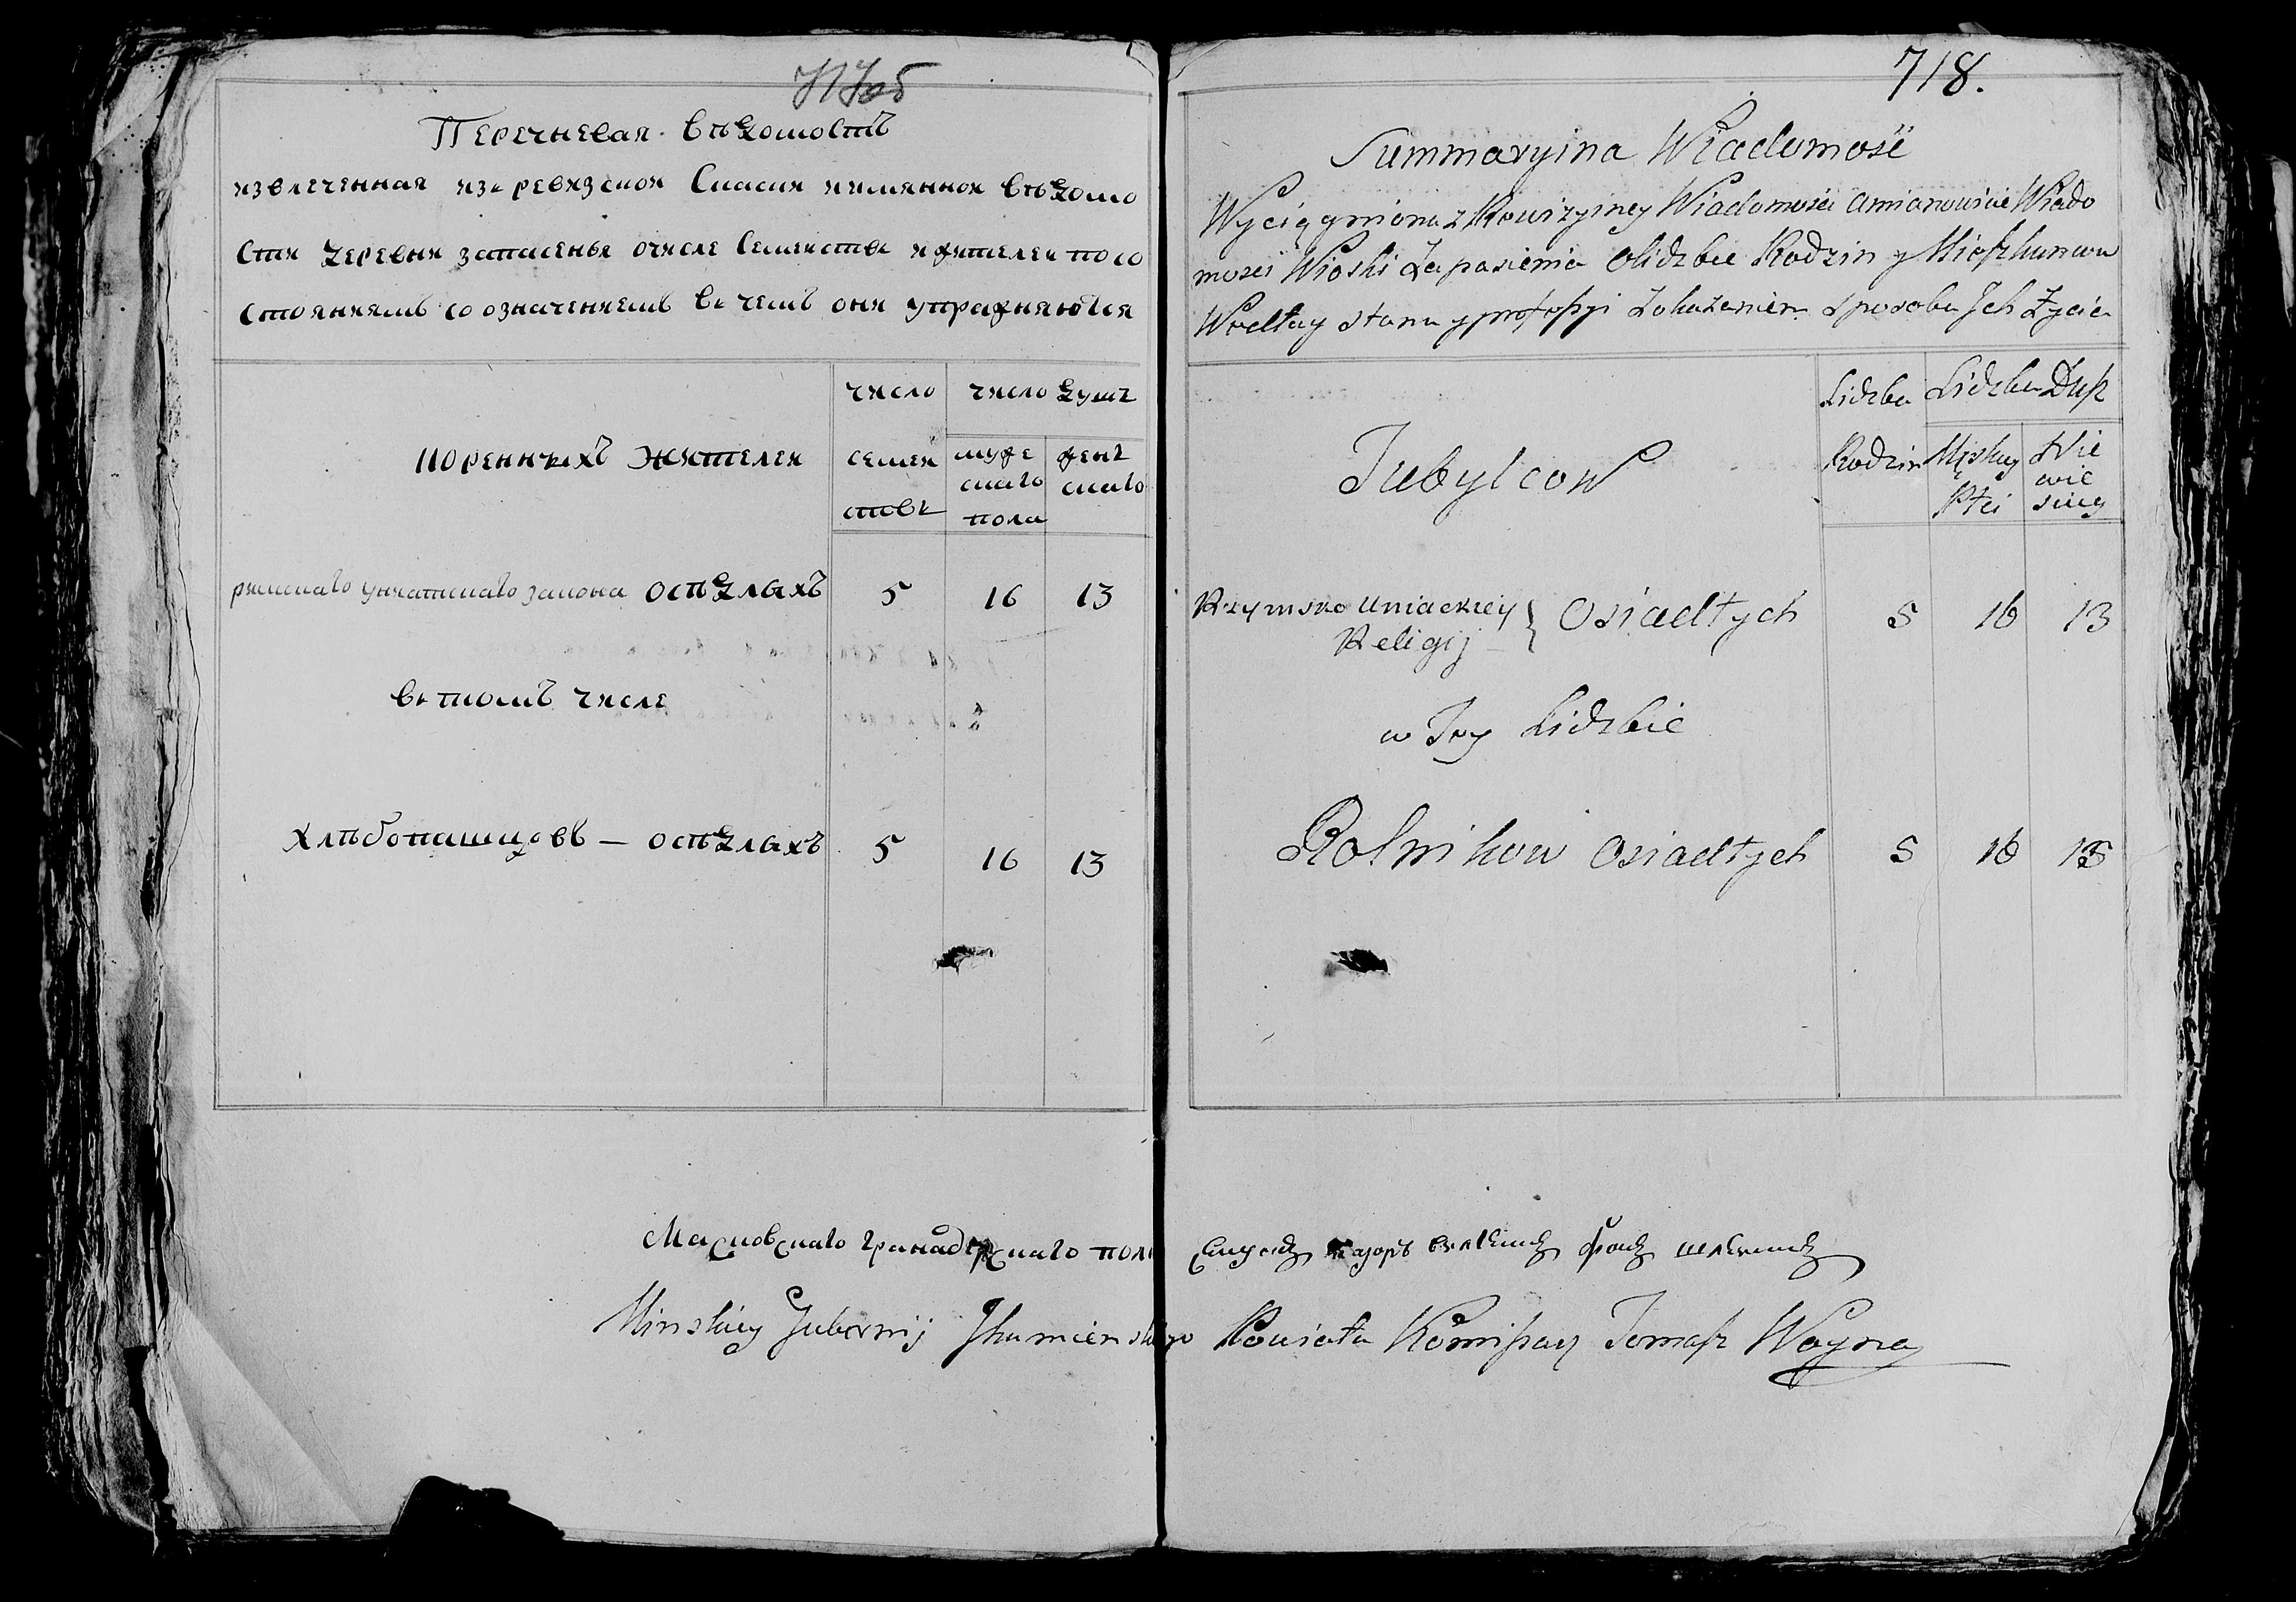 717об
Перечневая вѣдомость
извлеченная изъ ревизской Скаски и имянной вѣдомо
сти деревни запасенья очисле Семействъ и жителей по со
стояниямъ со означениемъ въ чемъ они упражняются
коренныхъ жителей
число
семей
ствъ
число душъ
муже
скаго
пола
женъ
скаго
римскаго униатскаго закона осѣдлыхъ 5 16 13
въ томъ числе
хлѣбопашцовъ — осѣдлыхъ 5 16 13
718.
Summaryina Wiadomość
Wyciągniona z Rewizyiney Wiadomości a mianowicie Wiado
mości Wioski Zapasienia o lidzbie Rodzin y Mieszkancow
Wedłuy stanu y professyi z okazaniem sposobu Jch Zycia
Tubylcow
Lidzba
Rodzin
Lidzba Dusz
Męskiey
Płci
Nie
wie
sciey
Rzymsko Uniackiey
Religij } Osiadłych 5 16 13
w Tey Lidzbie
Rolnikow Osiadłych 5 16 13
Московскаго гранадерскаго полк
Minskiey Gubernij Jhumienskiego Powiatu Komisarz Tomasz Woyna